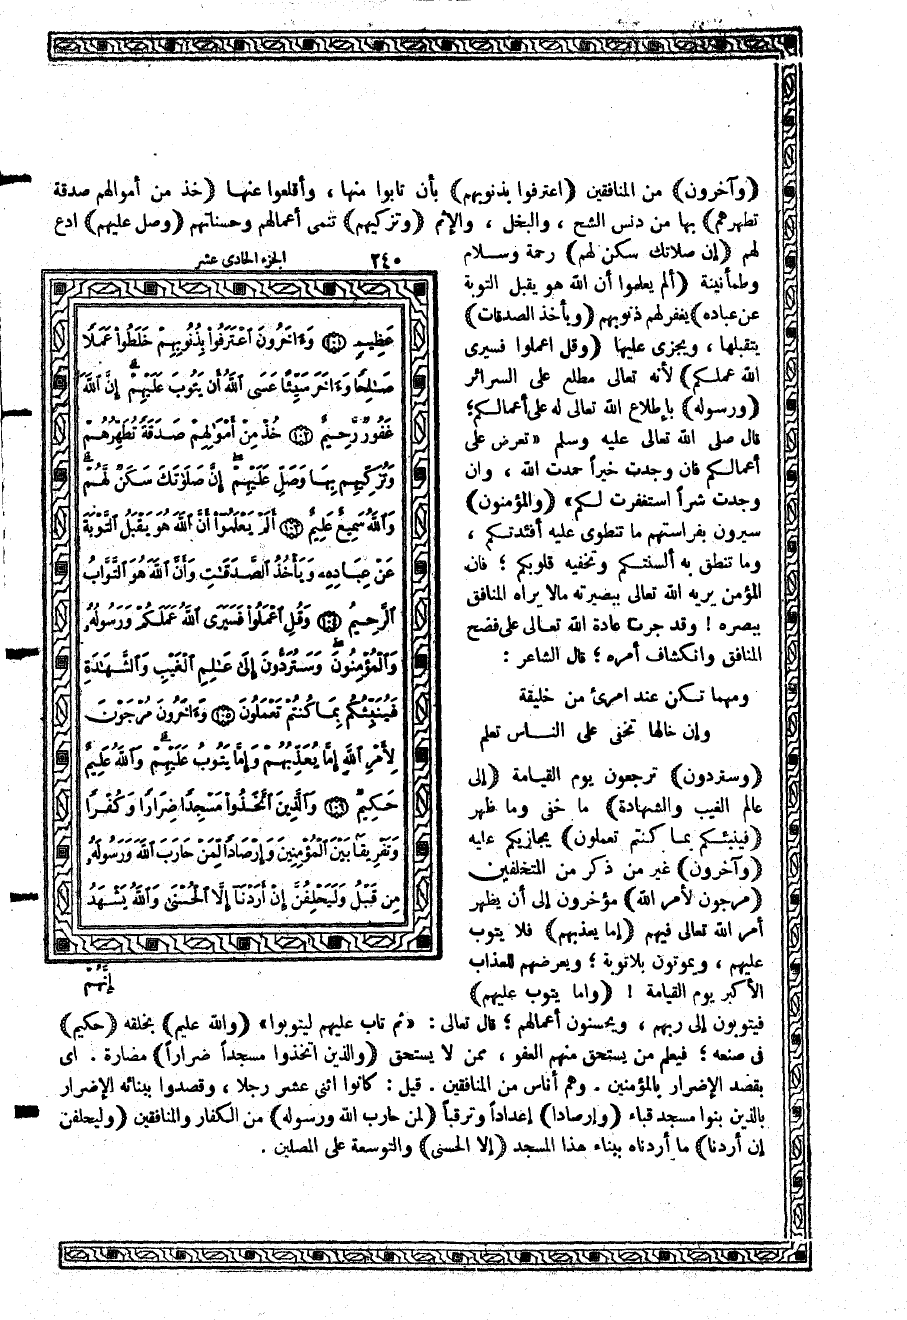 (وآخرون) من المنافقين (اعترفوا بذنوبهم) بأن تابوا منها ، وأقلعوا عنها (خذ من أموالهم صدقة
تطهرهم) بها من دنس الشح ، والبخل ، والإثم (وتزكيهم) تنمى أعمالهم وحسناتهم (وصل عليهم) ادع
لهم (إن صلاتك سكن لهم) رحمة وسلام
وطمأنينة (ألم يعلموا أن الله هو يقبل التوبة
عن عباده) يغفر لهم ذنوبهم (ويأخذ الصدقات)
يتقبلها ، ويجزى عليها (وقل اعملوا فسيرى
الله عملكم) لأنه تعالى مطلع على السرائر
(ورسوله) بإطلاع الله تعالى له على أعمالكم؛
قال صلى الله تعالى عليه وسلم «تعرض على
أعمالكم فان وجدت خيراً حمدت الله ، وان
وجدت شراً استغفرت لكم» (والمؤمنون)
سيرون بفراستهم ما تنطوى عليه أفئدتكم ،
وما تنطق به ألسنتكم وتخفيه قلوبكم ؛ فان
المؤمن يريه الله تعالى ببصيرته مالا يراه المنافق
ببصره ! وقد جرت عادة الله تعالى على فضح
المنافق وانكشاف أمره ؛ قال الشاعر :
ومهما تكن عند امرئ من خليقة
وإن خالها تخفى على الناس تعلم
(وستردون) ترجعون يوم القيامة (إلى
عالم الغيب والشهادة) ما خفى وما ظهر
(فينبئكم بما كنتم تعملون) يجازيكم عليه
(وآخرون) غير من ذكر من المتخلفين
(مرجون لأمر الله) مؤخرون إلى أن يظهر
أمر الله تعالى فيهم (إما يعذبهم) فلا يتوب
عليهم ، ويموتون بلا توبة ؛ ويعرضهم للعذاب
الأكبر يوم القيامة ! (واما يتوب عليهم)
٢٤٠ الجزء الحادى عشر
عَظِيمٍ ﴿١٠١﴾ وَءَاخَرُونَ ٱعْتَرَفُوا۟ بِذُنُوبِهِمْ خَلَطُوا۟ عَمَلًا
صَـٰلِحًا وَءَاخَرَ سَيِّئًا عَسَى ٱللَّهُ أَن يَتُوبَ عَلَيْهِمْ ۚ إِنَّ ٱللَّهَ
غَفُورٌ رَّحِيمٌ ﴿١٠٢﴾ خُذْ مِنْ أَمْوَٰلِهِمْ صَدَقَةً تُطَهِّرُهُمْ
وَتُزَكِّيهِم بِهَا وَصَلِّ عَلَيْهِمْ ۖ إِنَّ صَلَوٰتَكَ سَكَنٌ لَّهُمْ ۗ
وَٱللَّهُ سَمِيعٌ عَلِيمٌ ﴿١٠٣﴾ أَلَمْ يَعْلَمُوٓا۟ أَنَّ ٱللَّهَ هُوَ يَقْبَلُ ٱلتَّوْبَةَ
عَنْ عِبَادِهِۦ وَيَأْخُذُ ٱلصَّدَقَـٰتِ وَأَنَّ ٱللَّهَ هُوَ ٱلتَّوَّابُ
ٱلرَّحِيمُ ﴿١٠٤﴾ وَقُلِ ٱعْمَلُوا۟ فَسَيَرَى ٱللَّهُ عَمَلَكُمْ وَرَسُولُهُۥ
وَٱلْمُؤْمِنُونَ ۖ وَسَتُرَدُّونَ إِلَىٰ عَـٰلِمِ ٱلْغَيْبِ وَٱلشَّهَـٰدَةِ
فَيُنَبِّئُكُم بِمَا كُنتُمْ تَعْمَلُونَ ﴿١٠٥﴾ وَءَاخَرُونَ مُرْجَوْنَ
لِأَمْرِ ٱللَّهِ إِمَّا يُعَذِّبُهُمْ وَإِمَّا يَتُوبُ عَلَيْهِمْ ۗ وَٱللَّهُ عَلِيمٌ
حَكِيمٌ ﴿١٠٦﴾ وَٱلَّذِينَ ٱتَّخَذُوا۟ مَسْجِدًا ضِرَارًا وَكُفْرًا
وَتَفْرِيقًا بَيْنَ ٱلْمُؤْمِنِينَ وَإِرْصَادًا لِّمَنْ حَارَبَ ٱللَّهَ وَرَسُولَهُۥ
مِن قَبْلُ وَلَيَحْلِفُنَّ إِنْ أَرَدْنَآ إِلَّا ٱلْحُسْنَىٰ وَٱللَّهُ يَشْهَدُ
إِنَّهُمْ
فيتوبون إلى ربهم ، ويحسنون أعمالهم ؛ قال تعالى : «ثم تاب عليهم ليتوبوا» (والله عليم) بخلقه (حكيم)
فى صنعه ؛ فيعلم من يستحق منهم العفو ، ممن لا يستحق (والذين اتخذوا مسجداً ضراراً) مضارة . اى
بقصد الإضرار بالمؤمنين . وهم أناس من المنافقين . قيل : كانوا اثنى عشر رجلا ، وقصدوا ببنائه الإضرار
بالذين بنوا مسجد قباء (وإرصادا) إعداداً وترقباً (لمن حارب الله ورسوله) من الكفار والمنافقين (وليحلفن
إن أردنا) ما أردناه ببناء هذا المسجد (إلا الحسنى) والتوسعة على المصلين .